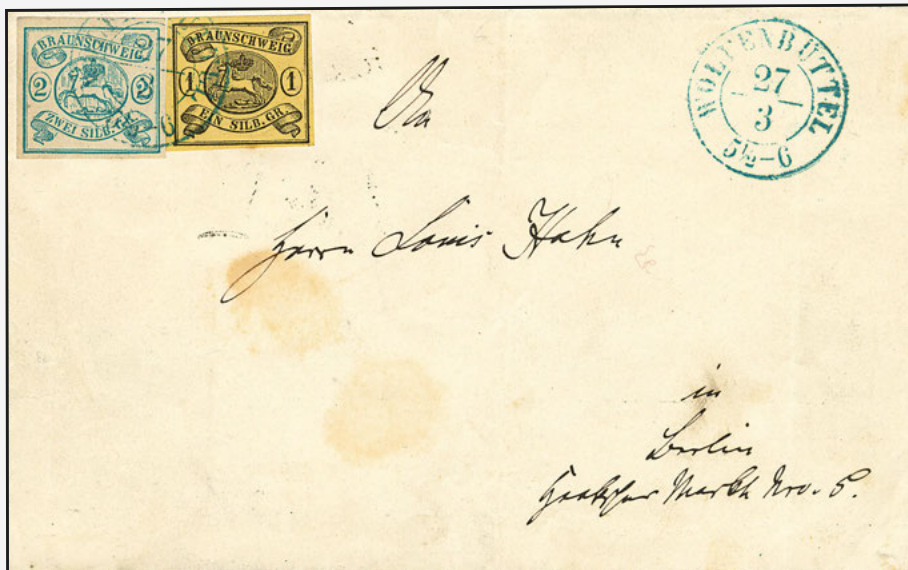 BRAUNSCHWEIG
2 2
ZWEI SILB. GR.
BRAUNSCHWEIG
1 1
EIN SILB. GR.
WOLFENBÜTTEL
27
3
5½-6
An
Herrn Louis Hahn
in
Berlin
Markt Nro. 5.